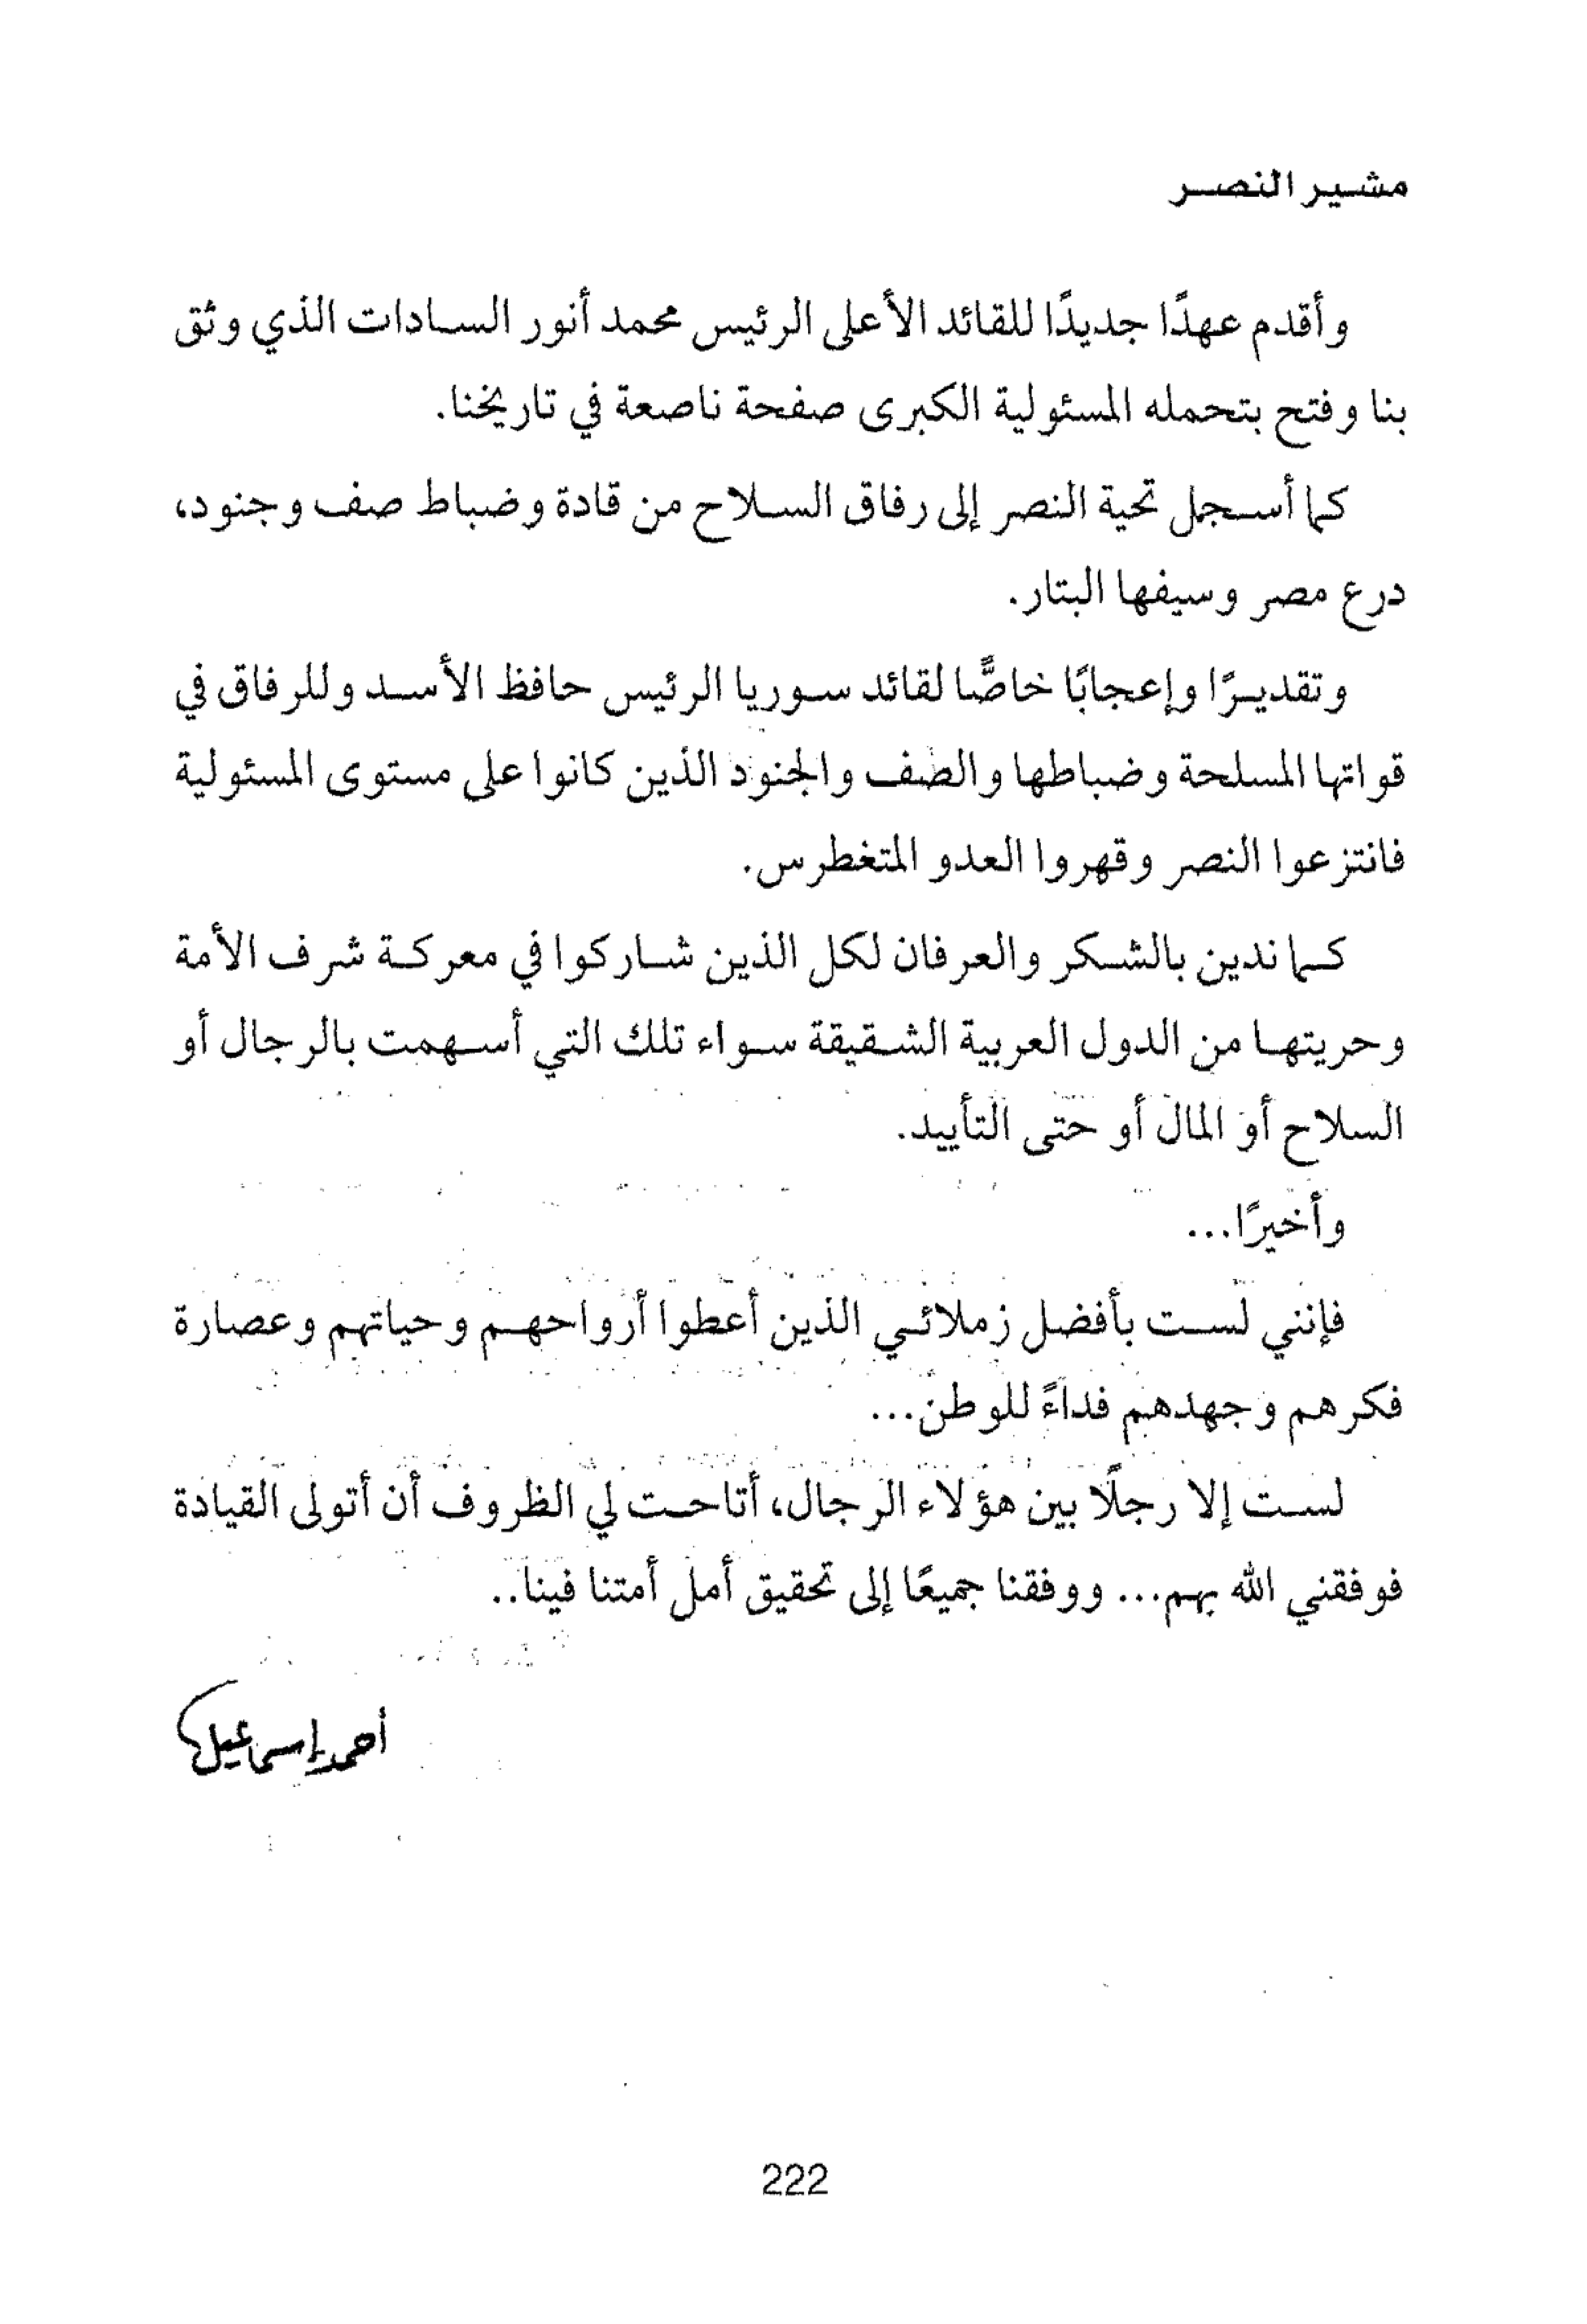 مشير النصر
وأقدم عهدًا جديدًا للقائد الأعلى الرئيس محمد أنور السادات الذي وثق
بنا وفتح بتحمله المسئولية الكبرى صفحة ناصعة في تاريخنا.
كما أسجل تحية النصر إلى رفاق السلاح من قادة وضباط صف وجنود،
درع مصر وسيفها البتار.
وتقديرًا وإعجابًا خاصًّا لقائد سوريا الرئيس حافظ الأسد وللرفاق في
قواتها المسلحة وضباطها والصف والجنود الذين كانوا على مستوى المسئولية
فانتزعوا النصر وقهروا العدو المتغطرس.
كما ندين بالشكر والعرفان لكل الذين شاركوا في معركة شرف الأمة
وحريتها من الدول العربية الشقيقة سواء تلك التي أسهمت بالرجال أو
السلاح أو المال أو حتى التأييد.
وأخيرًا...
فإنني لست بأفضل زملائي الذين أعطوا أرواحهم وحياتهم وعصارة
فكرهم وجهدهم فداءً للوطن...
لست إلا رجلًا بين هؤلاء الرجال، أتاحت لي الظروف أن أتولى القيادة
فوفقني الله بهم... ووفقنا جميعًا إلى تحقيق أمل أمتنا فينا..
أحمد إسماعيل
222